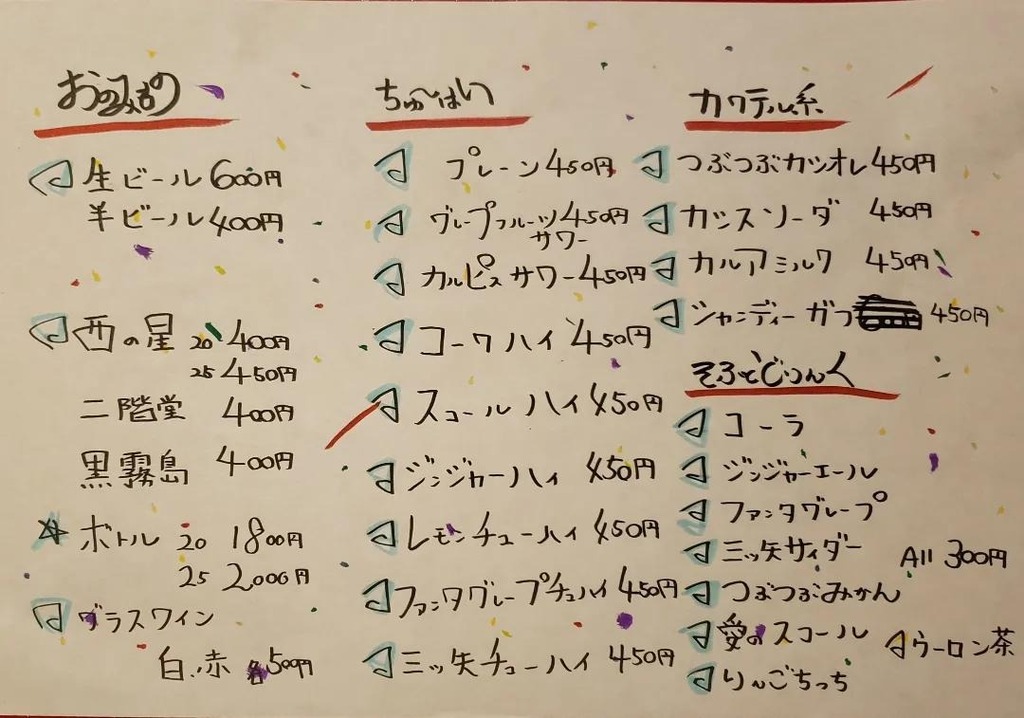 おのみもの
生ビール 600円
半ビール 400円
西の星 20 400円
25 450円
二階堂 400円
黒霧島 400円
ボトル 20 1800円
25 2,000円
グラスワイン
白.赤 各500円
ちゅ〜はい
プレーン 450円
グレープフルーツ 450円
サワー
カルピスサワー 450円
コークハイ 450円
スコールハイ 450円
ジンジャーハイ 450円
レモンチューハイ 450円
ファンタグレープチュハイ 450円
三ッ矢チューハイ 450円
カクテル系
つぶつぶカツオレ 450円
カシスソーダ 450円
カルアミルク 450円
シャンディーガフ 450円
そふとどりんく
コーラ
ジンジャーエール
ファンタグレープ
三ッ矢サイダー
All 300円
つぶつぶみかん
愛のスコール
ウーロン茶
りんごちっち